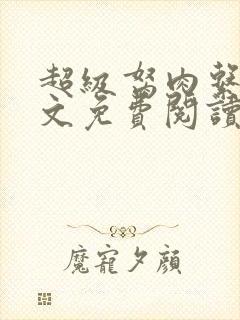 超級駑肉教
文免費閱讀
魔寵夕顏